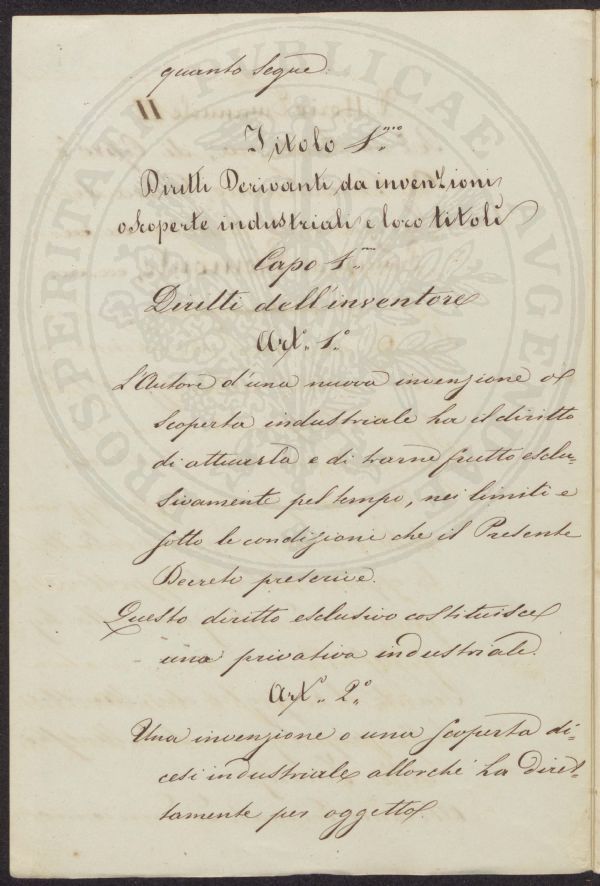 quanto segue.
Titolo 1.mo
Diritti Derivanti da invenzioni
o scoperte industriali e loro titoli
Capo 1.mo
Diritti dell'inventore
Art.º 1.º
L'Autore d'una nuova invenzione o
Scoperta industriale ha il diritto
di attuarla e di trarne frutto esclu-
sivamente pel tempo, nei limiti e
sotto le condizioni che il Presente
Decreto prescrive.
Questo diritto esclusivo costituisce
una privativa industriale.
Art.º 2.º
Una invenzione o una scoperta di-
cesi industriale allorché ha diret-
tamente per oggetto.
PROSPERITATI PUBLICAE AUGENDAE